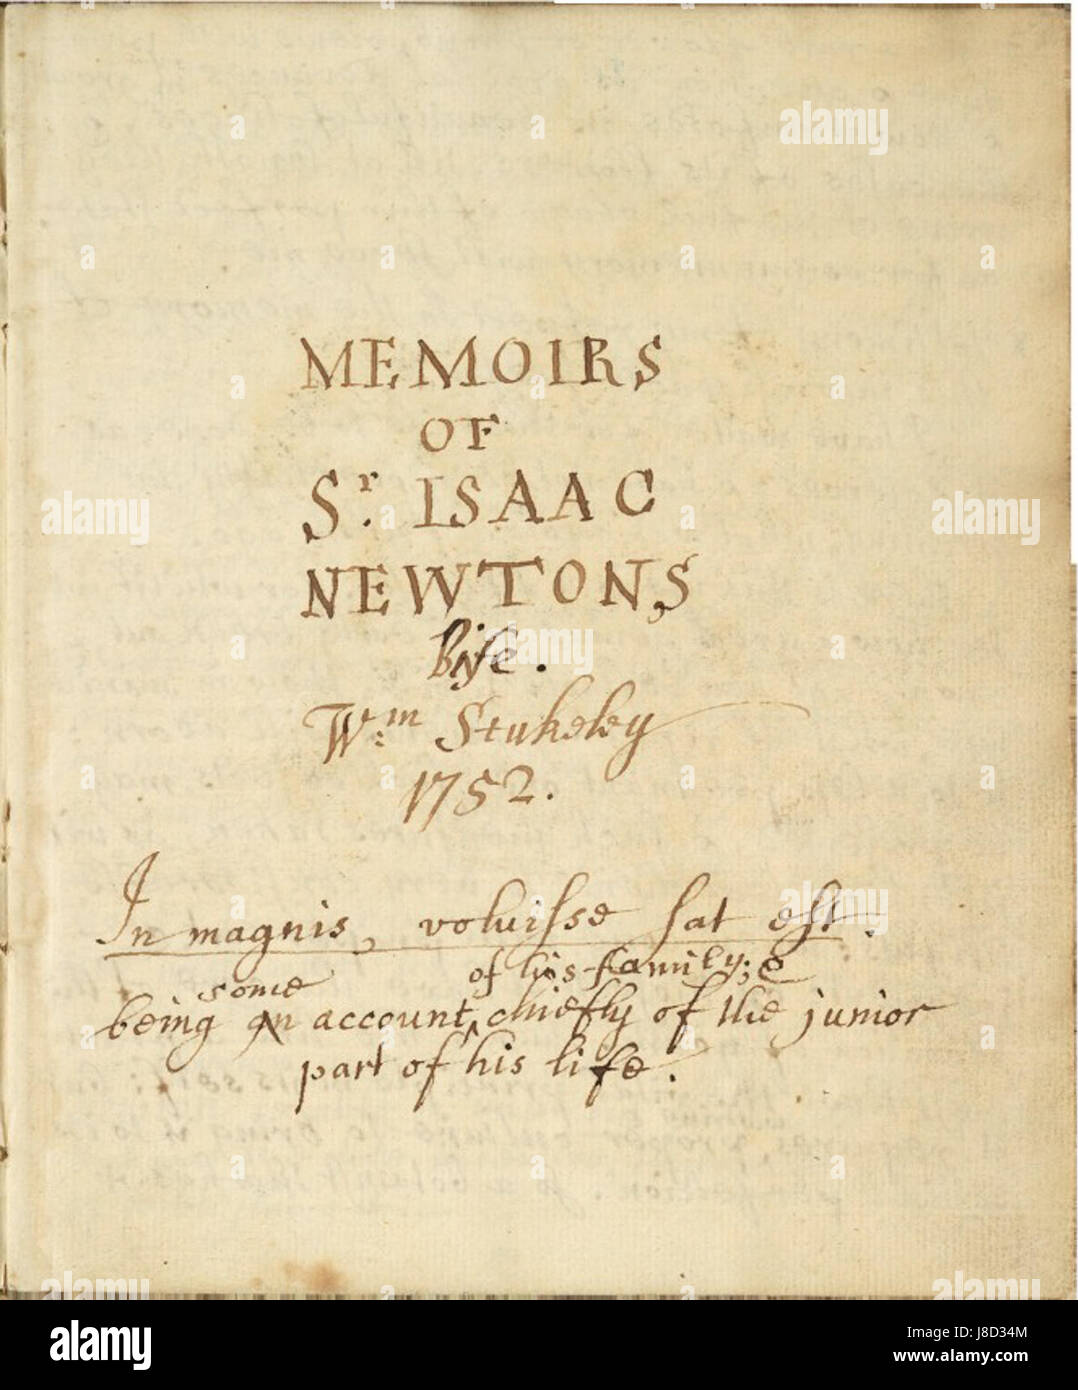 MEMOIRS
OF
Sr. ISAAC
NEWTONS
life.
Wm. Stukeley
1752.
In magnis, voluiſse ſat eſt.
some of his family; &
being an account, chiefly of the junior
part of his life.
alamy
Image ID: J8D34M
www.alamy.com